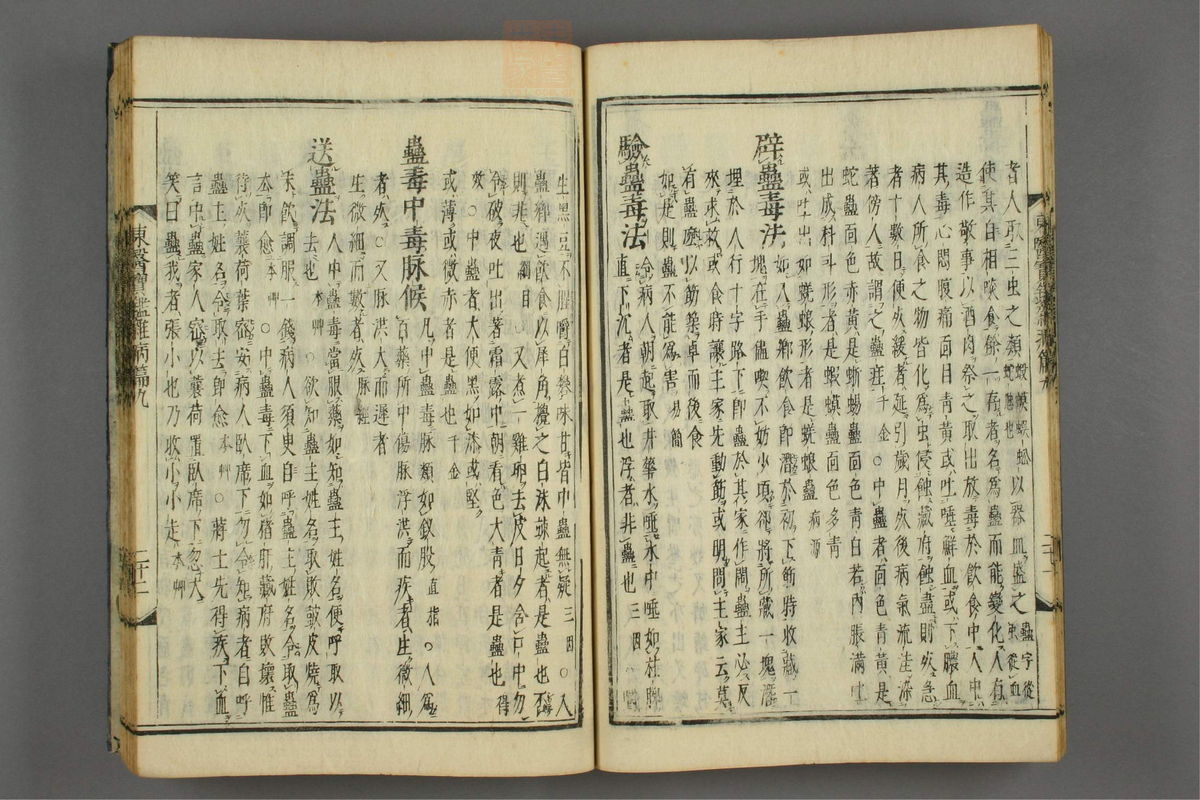 者人取三虫之類蝦蟆蜈蚣蛇虺也以器皿盛之蠱字從䖝從皿
使其自相啖食餘一存者名爲蠱而能變化人有
造作敬事以酒肉祭之取出放毒於飲食中人中
其毒心悶腹痛面目青黃或吐唾鮮血或下膿血
病人所食之物皆化爲虫侵蝕藏府蝕盡則死急
者十數日便死緩者延引歲月死後病氣流注染
著傍人故謂之蠱疰千金○中蠱者面色青黃是
蛇蠱面色赤黃是蜥蜴蠱面色青白若內脹滿吐
出成科斗形者是蝦蟆蠱面色多青
或吐出如蜣蜋形者是蜣蜋蠱病源
辟蠱毒法 如入蠱鄉飲食即潛於初下筯時收藏一
塊在手儘喫不妨少頃却將所藏一塊潛
埋於人行十字路下即蠱於其家作鬧蠱主必反
來求救或食時讓主家先動筯或明問主家云莫
有蠱麽以筯築卓而後食
如是則蠱不能爲害易簡
驗蠱毒法 令病人朝起取井華水唾水中唾如柱脚
直下沉者是蠱也浮者非蠱也三因
東醫寶鑑雜病篇九
二十二
生黑豆不腥嚼白礬味甘皆中蠱無疑三因○入
蠱鄉遇飲食以犀角攪之白沫竦起者是蠱也否
則非也綱目○又煮一雞卵去皮日夕含口中勿
令破夜吐出著霜露中朝看色大青者是蠱也得
效○中蠱者大便黑如漆或堅
或薄或微赤者是蠱也千金
蠱毒中毒脉候 凡中蠱毒脉類如釵股直指○人爲
百藥所中傷脉浮洪而疾者生微細
者死○又脉洪大而遲者
生微細而數者死脉經
送蠱法 人中蠱毒當服藥如知蠱主姓名便呼取以
去也本草○欲知蠱主姓名取敗皷皮燒爲
末飲調服一錢病人須臾自呼蠱主姓名令取蠱
去即愈本草○中蠱毒下血如猪肝藏府敗壞惟
待死蘘荷葉密安病人臥席下勿令知病者自呼
蠱主姓名令取去即愈本草○蔣士先得疾下血
言中蠱家人密以蘘荷置臥席下忽大
笑曰蠱我者張小也乃收小小走本草
東醫寶鑑雜病篇九
二十二